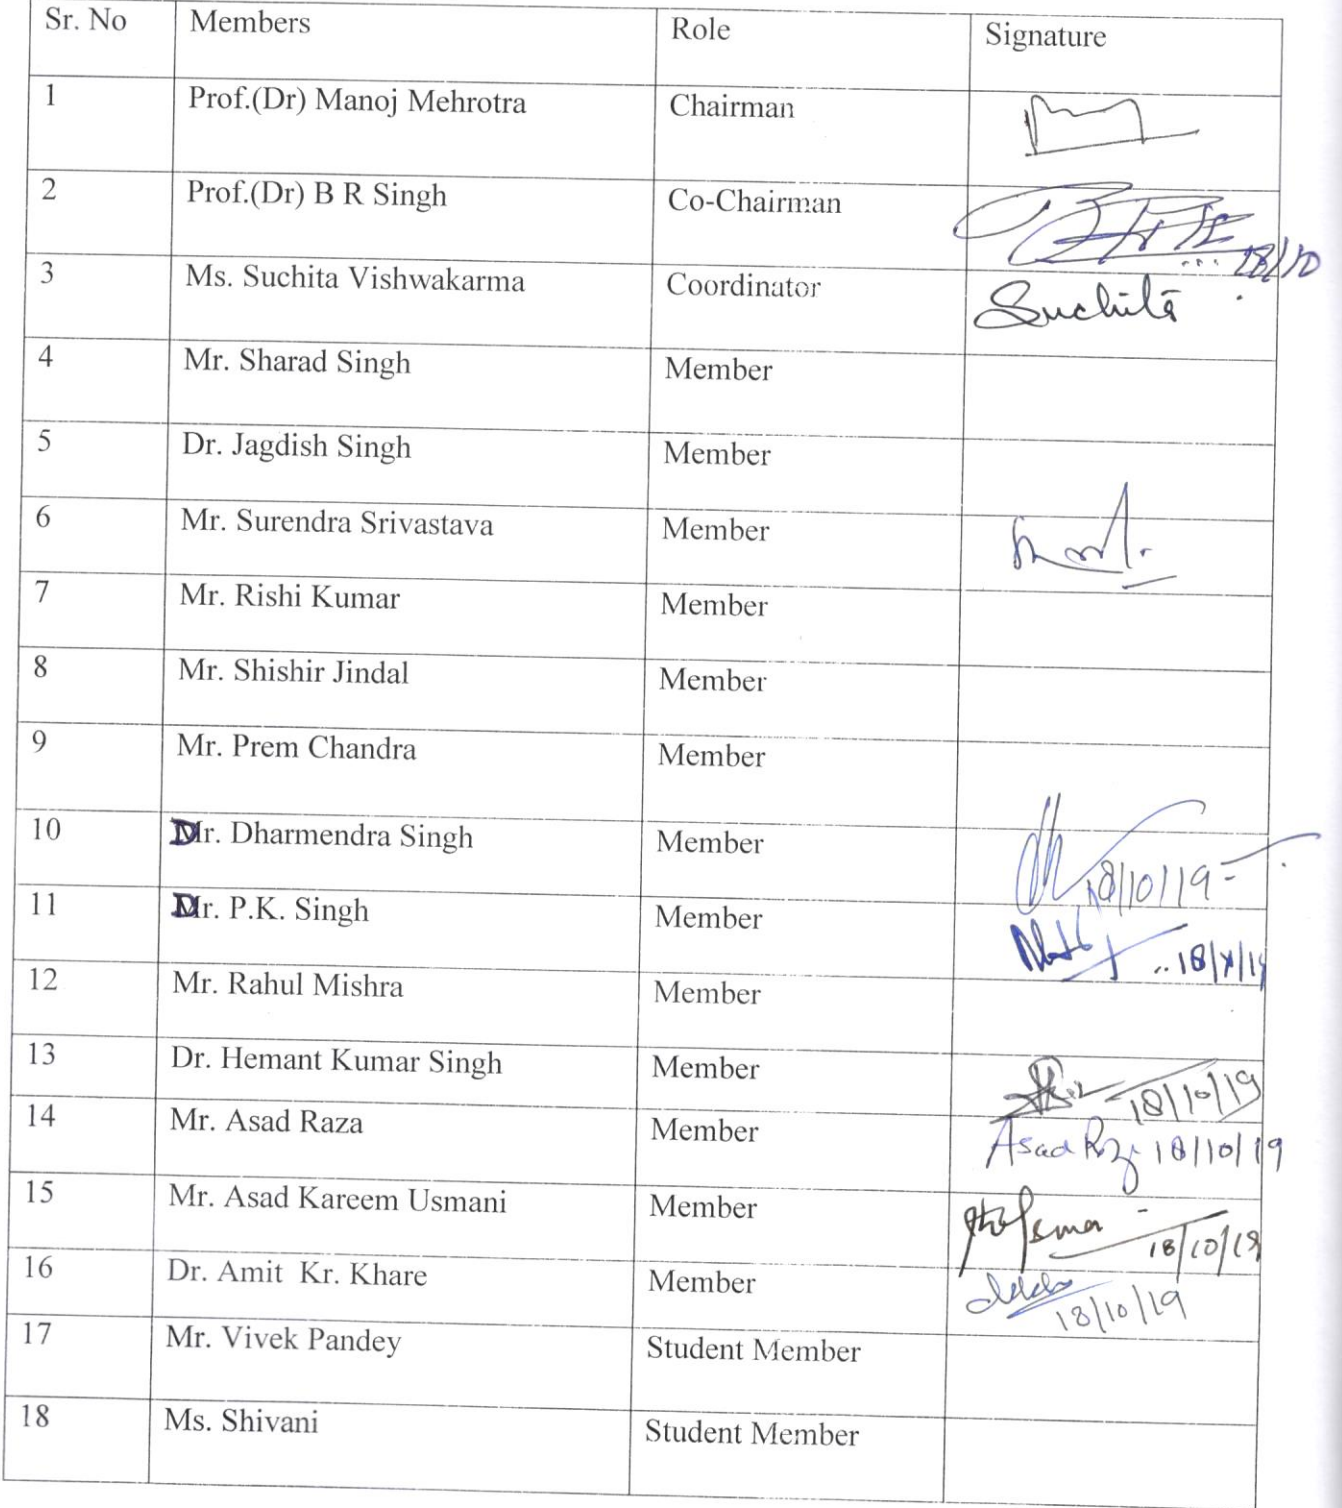 Sr. No Members Role Signature
1 Prof.(Dr) Manoj Mehrotra Chairman
2 Prof.(Dr) B R Singh Co-Chairman 18/10
3 Ms. Suchita Vishwakarma Coordinator Suchita
4 Mr. Sharad Singh Member
5 Dr. Jagdish Singh Member
6 Mr. Surendra Srivastava Member
7 Mr. Rishi Kumar Member
8 Mr. Shishir Jindal Member
9 Mr. Prem Chandra Member
10 Dr. Dharmendra Singh Member 18/10/19
11 Dr. P.K. Singh Member 18/X/19
12 Mr. Rahul Mishra Member
13 Dr. Hemant Kumar Singh Member 18/10/19
14 Mr. Asad Raza Member Asad Raza 18/10/19
15 Mr. Asad Kareem Usmani Member 18/10/19
16 Dr. Amit Kr. Khare Member 18/10/19
17 Mr. Vivek Pandey Student Member
18 Ms. Shivani Student Member